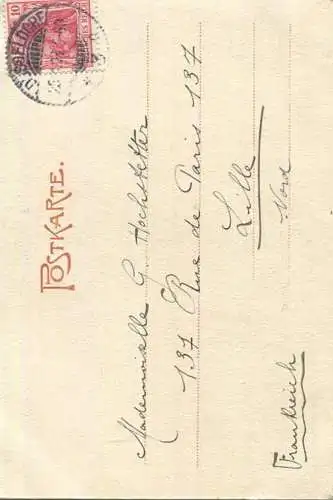 POSTKARTE.
Mademoiselle G. Hochstetter
137 Rue de Paris 137
Lille
Nord
Frankreich
10